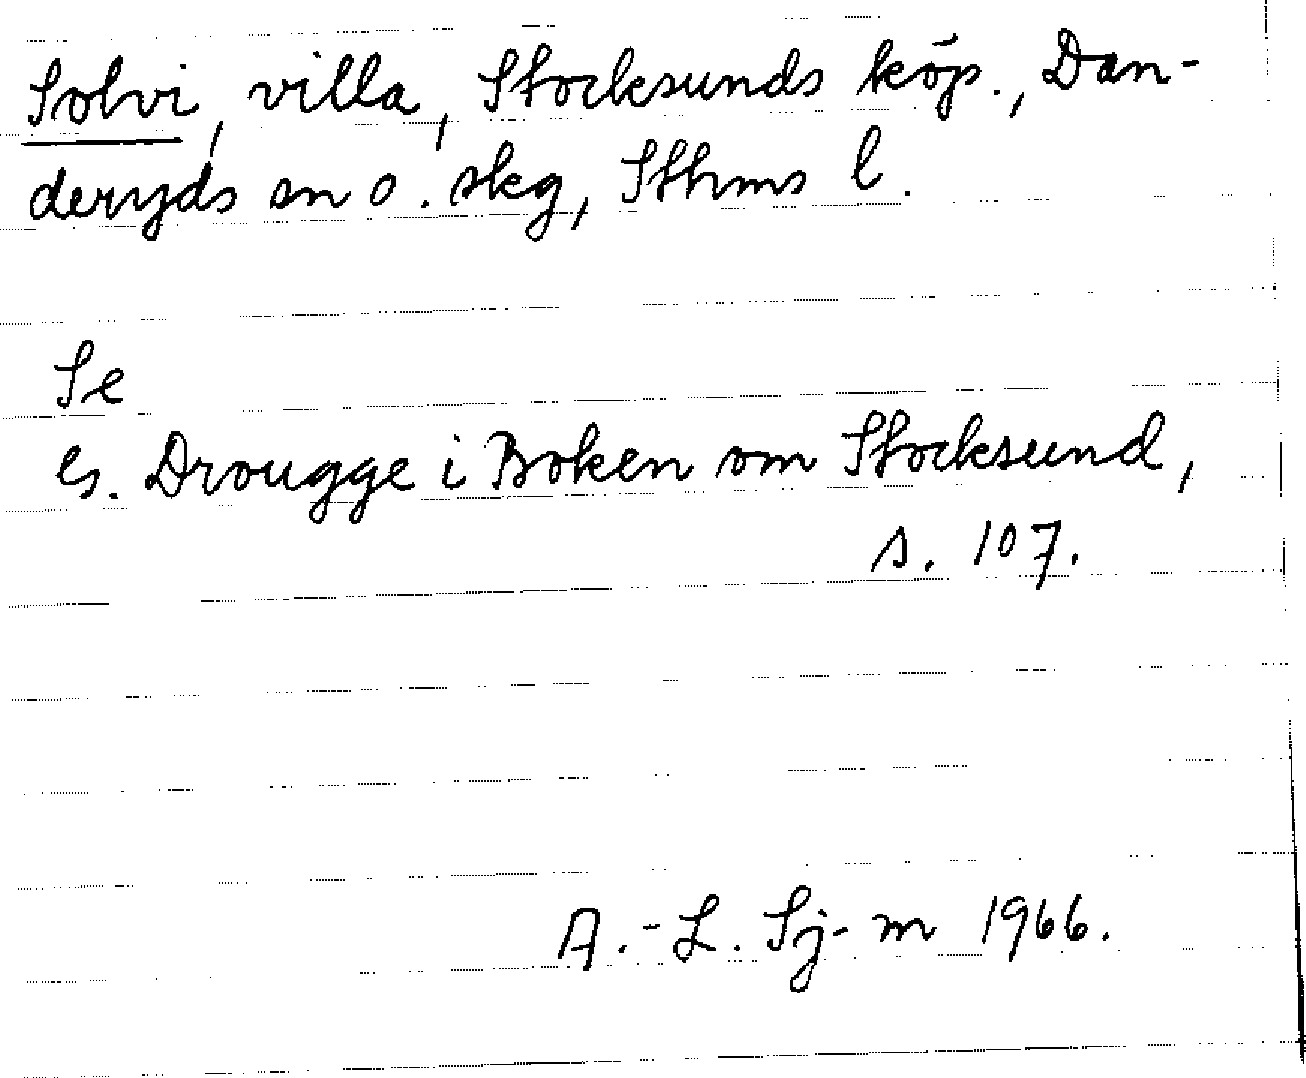 Solvi, villa, Stocksunds köp., Dan-
deryds sn o. skg, Sthms l.
Se
G. Drougge i Boken om Stocksund,
s. 107.
A.-L. Sj-m 1966.